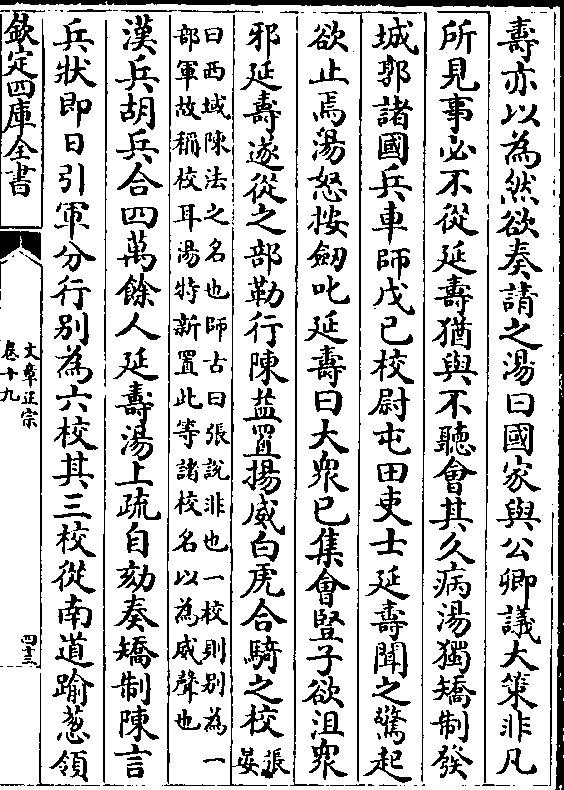 壽亦以為然欲奏請之湯曰國家與公卿議大策非凡
所見事必不從延壽猶與不聽會其久病湯獨矯制發
城郭諸國兵車師戊已校尉屯田吏士延壽聞之驚起
欲止焉湯怒按劒叱延壽曰大衆已集會豎子欲沮衆
邪延壽遂從之部勒行陳益置揚威白虎合騎之校張晏
曰西域陳法之名也師古曰張說非也一校則别為一
部軍故稱校耳湯特新置此等諸校名以為威聲也
漢兵胡兵合四萬餘人延壽湯上疏自劾奏矯制陳言
兵狀即日引軍分行别為六校其三校從南道踰葱領
欽定四庫全書
文章正宗
卷十九
四十三